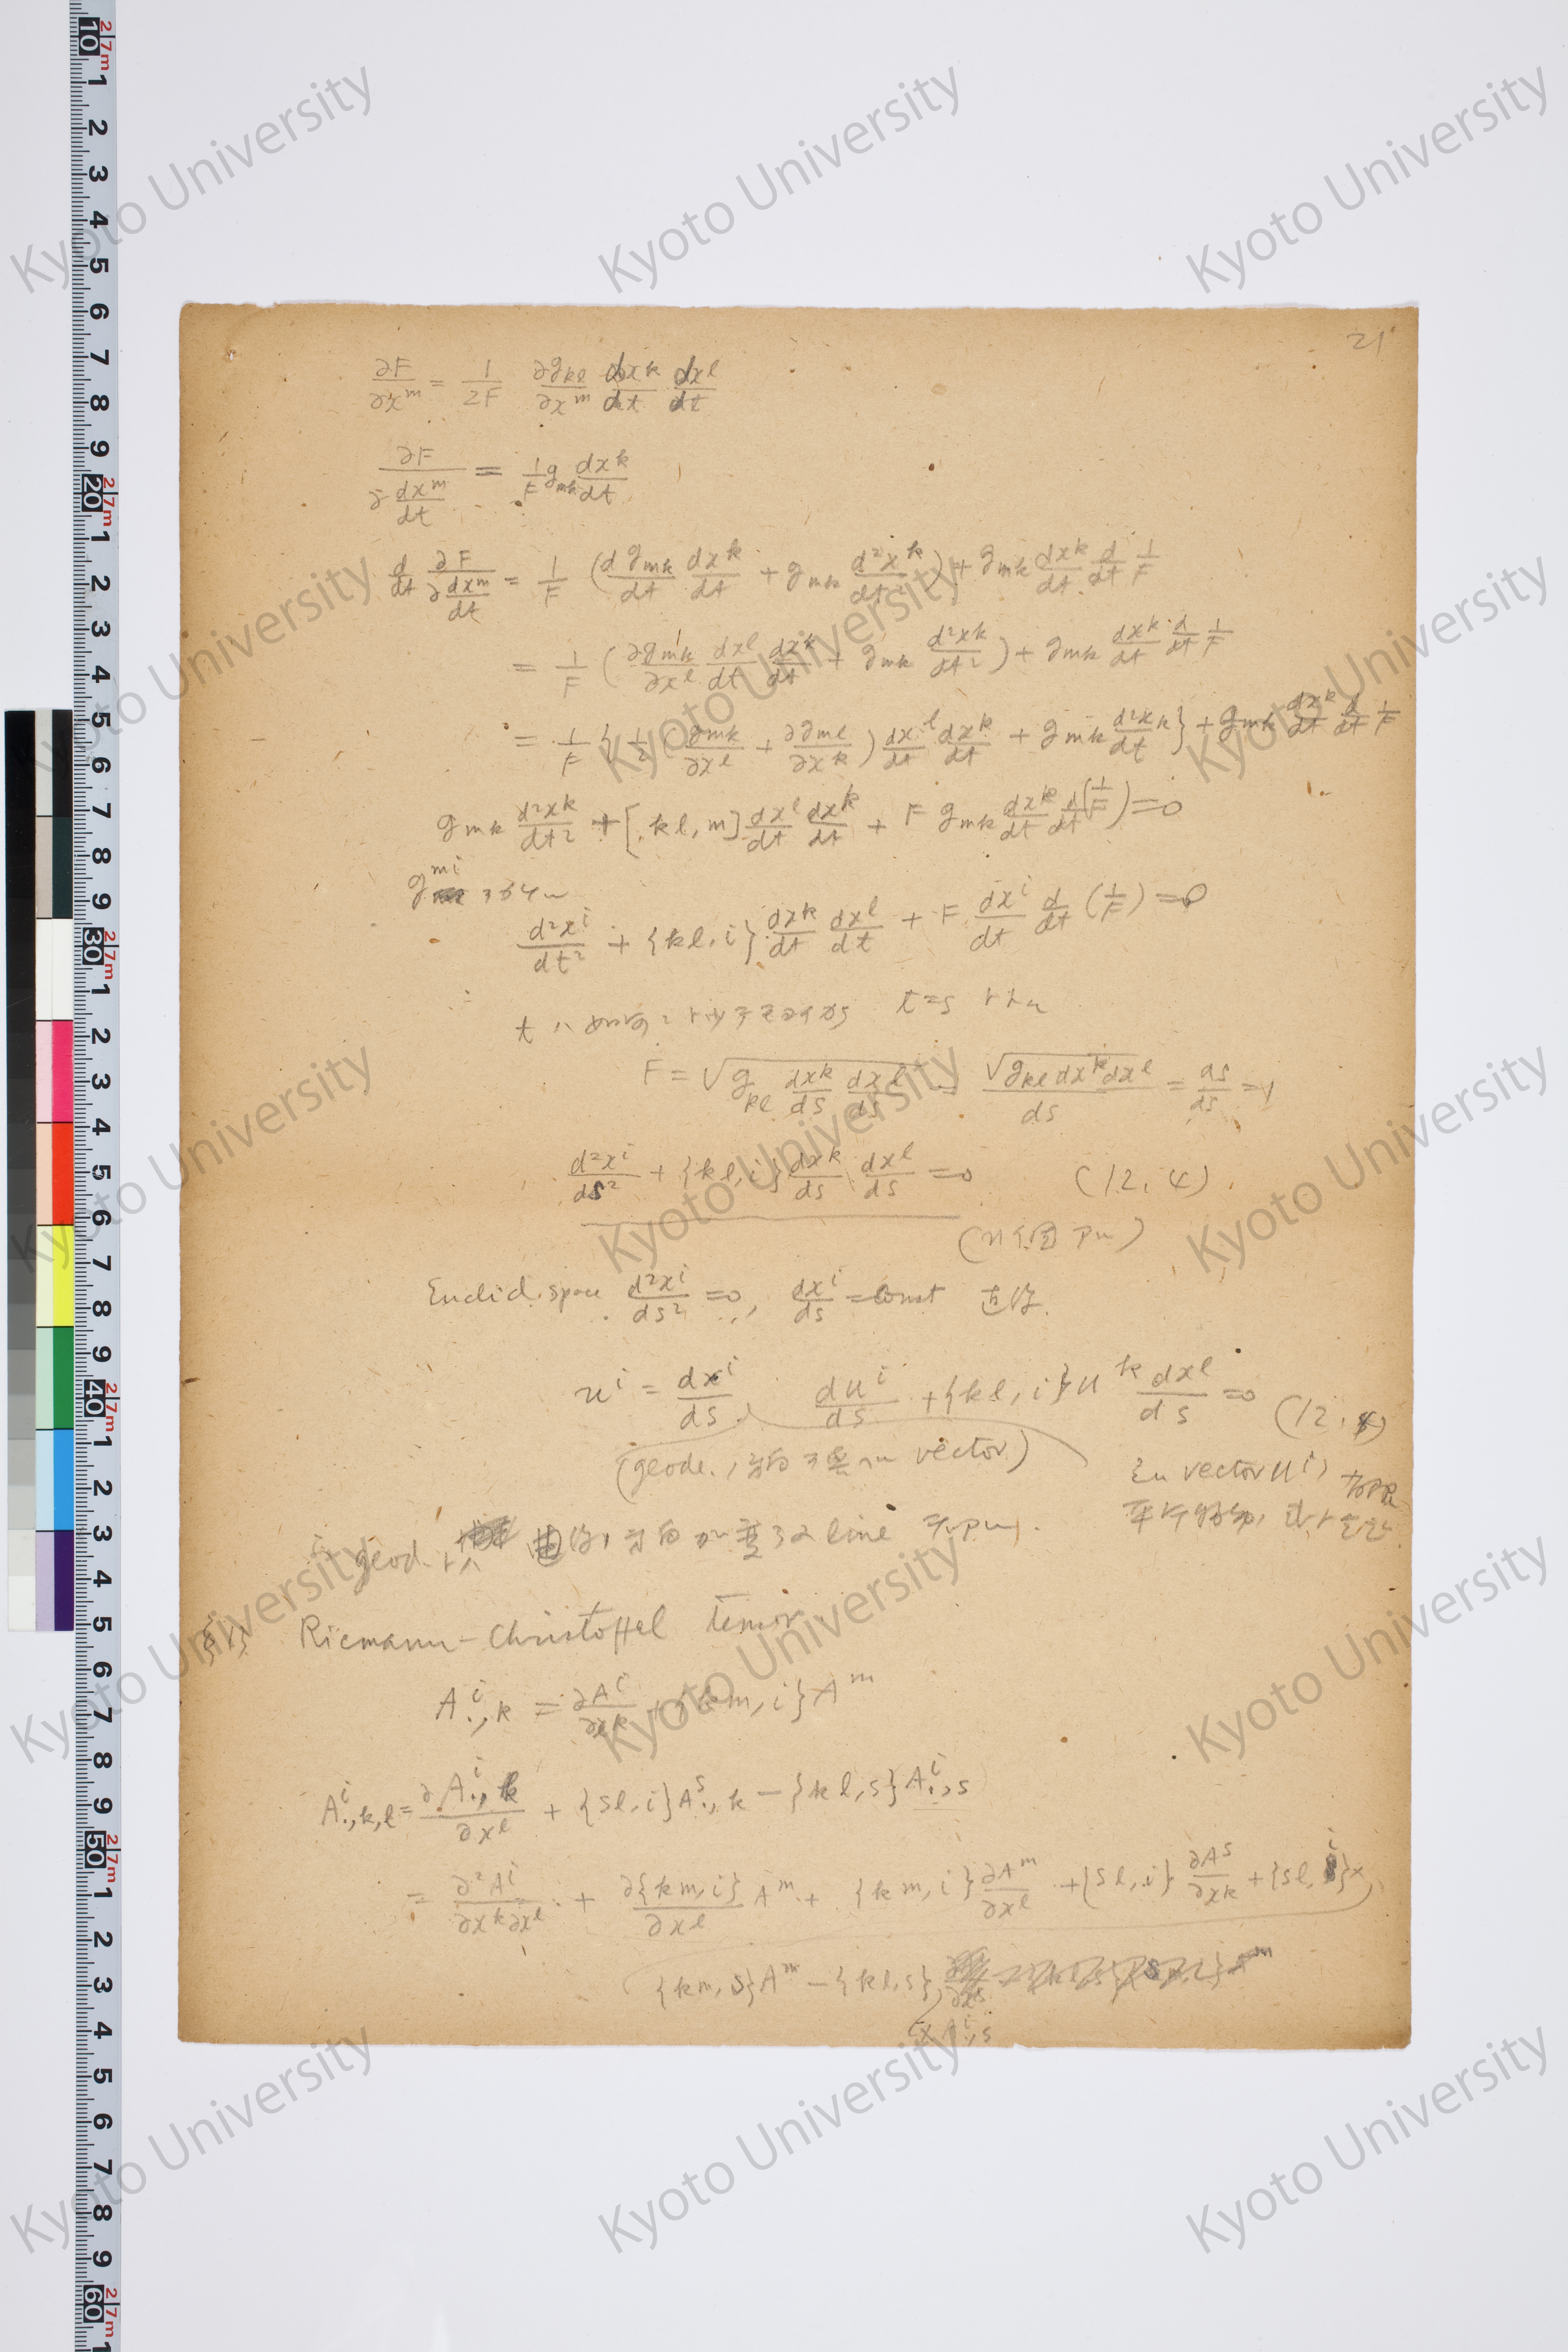 21
∂F/∂x^m = 1/2F ∂g_kl/∂x^m dx^k/dt dx^l/dt
∂F/∂ dx^m/dt = 1/F g_mk dx^k/dt
d/dt ∂F/∂ dx^m/dt = 1/F (d g_mk/dt dx^k/dt + g_mk d²x^k/dt²) + g_mk dx^k/dt d/dt 1/F
= 1/F (∂g_mk/∂x^l dx^l/dt dx^k/dt + g_mk d²x^k/dt²) + g_mk dx^k/dt d/dt 1/F
= 1/F {1/2 (∂g_mk/∂x^l + ∂g_ml/∂x^k) dx^l/dt dx^k/dt + g_mk d²x^k/dt} + g_mk dx^k/dt d/dt 1/F
g_mk d²x^k/dt² + [kl, m] dx^l/dt dx^k/dt + F g_mk dx^k/dt d/dt (1/F) = 0
g^mi
d²x^i/dt² + {kl, i} dx^k/dt dx^l/dt + F dx^i/dt d/dt (1/F) = 0
t ハ t = s トトル
F = √g_kl dx^k/ds dx^l/ds = √g_kl dx^k dx^l/ds = ds/ds = 1
d²x^i/ds² + {kl, i} dx^k/ds dx^l/ds = 0 (12, 4).
(n 個 アル)
Euclid. space d²x^i/ds² = 0, dx^i/ds = const 直線.
u^i = dx^i/ds, du^i/ds + {kl, i} u^k dx^l/ds = 0 (12, 4)
(geode. ノ 方向 ヲ vector)
vector u^i
geod. トハ 方向 ガ line デアル.
§13 Riemann-Christoffel tensor
A^i_.,k = ∂A^i/∂x^k + {km, i} A^m
A^i_.,k,l = ∂A^i_.,k/∂x^l + {sl, i} A^s_.,k − {kl, s} A^i_.,s
= ∂²A^i/∂x^k∂x^l + ∂{km, i}/∂x^l A^m + {km, i} ∂A^m/∂x^l + {sl, i} ∂A^s/∂x^k + {sl, i} ×
{km, s} A^m − {kl, s}
× A^i_.,s
Kyoto University